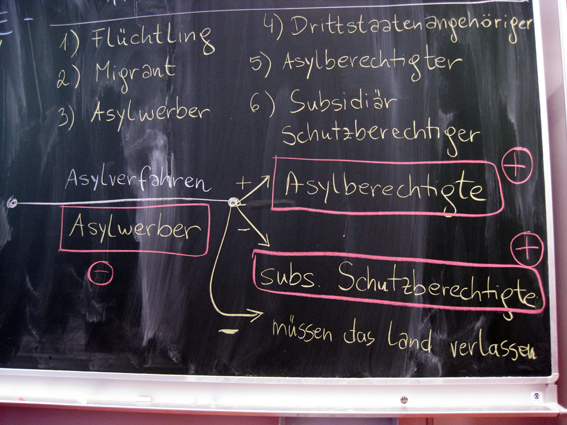 1) Flüchtling
2) Migrant
3) Asylwerber
4) Drittstaatenangehöriger
5) Asylberechtigter
6) Subsidiär
Schutzberechtiger
Asylverfahren
Asylwerber
-
+
Asylberechtigte
+
-
subs. Schutzberechtigte
+
-
müssen das Land verlassen